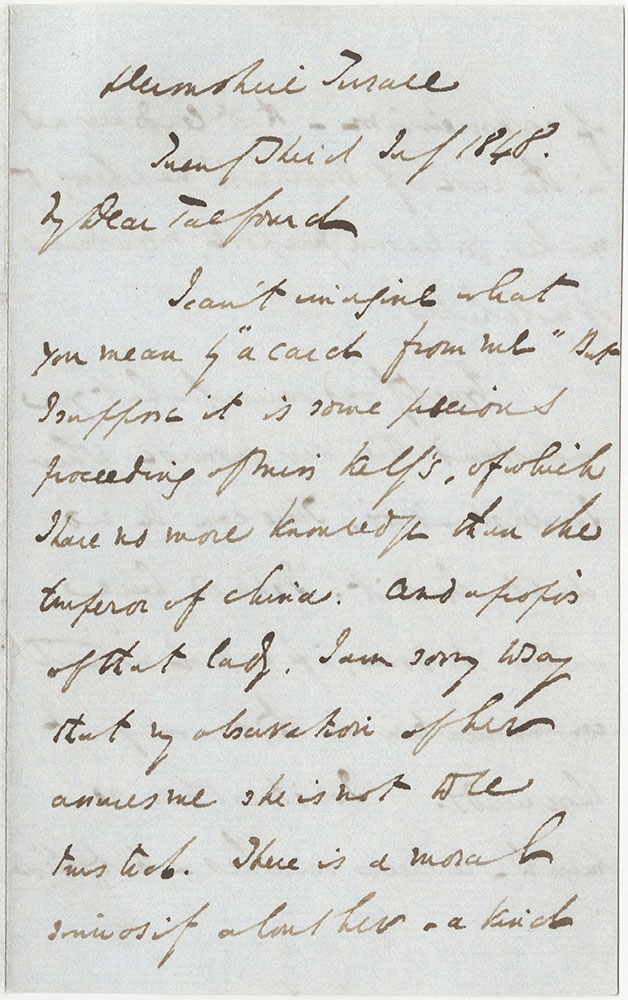 Devonshire Terrace
Twenty Third July 1848.
My Dear Talfourd
I can't imagine what
you mean by "a card from me" But
I suppose it is some precious
proceeding of Miss Kelly's, of which
I have no more knowledge than the
Emperor of China. And apropos
of that lady, I am sorry to say
that my observation of her
assures me she is not to be
trusted. There is a moral
about her - a kind